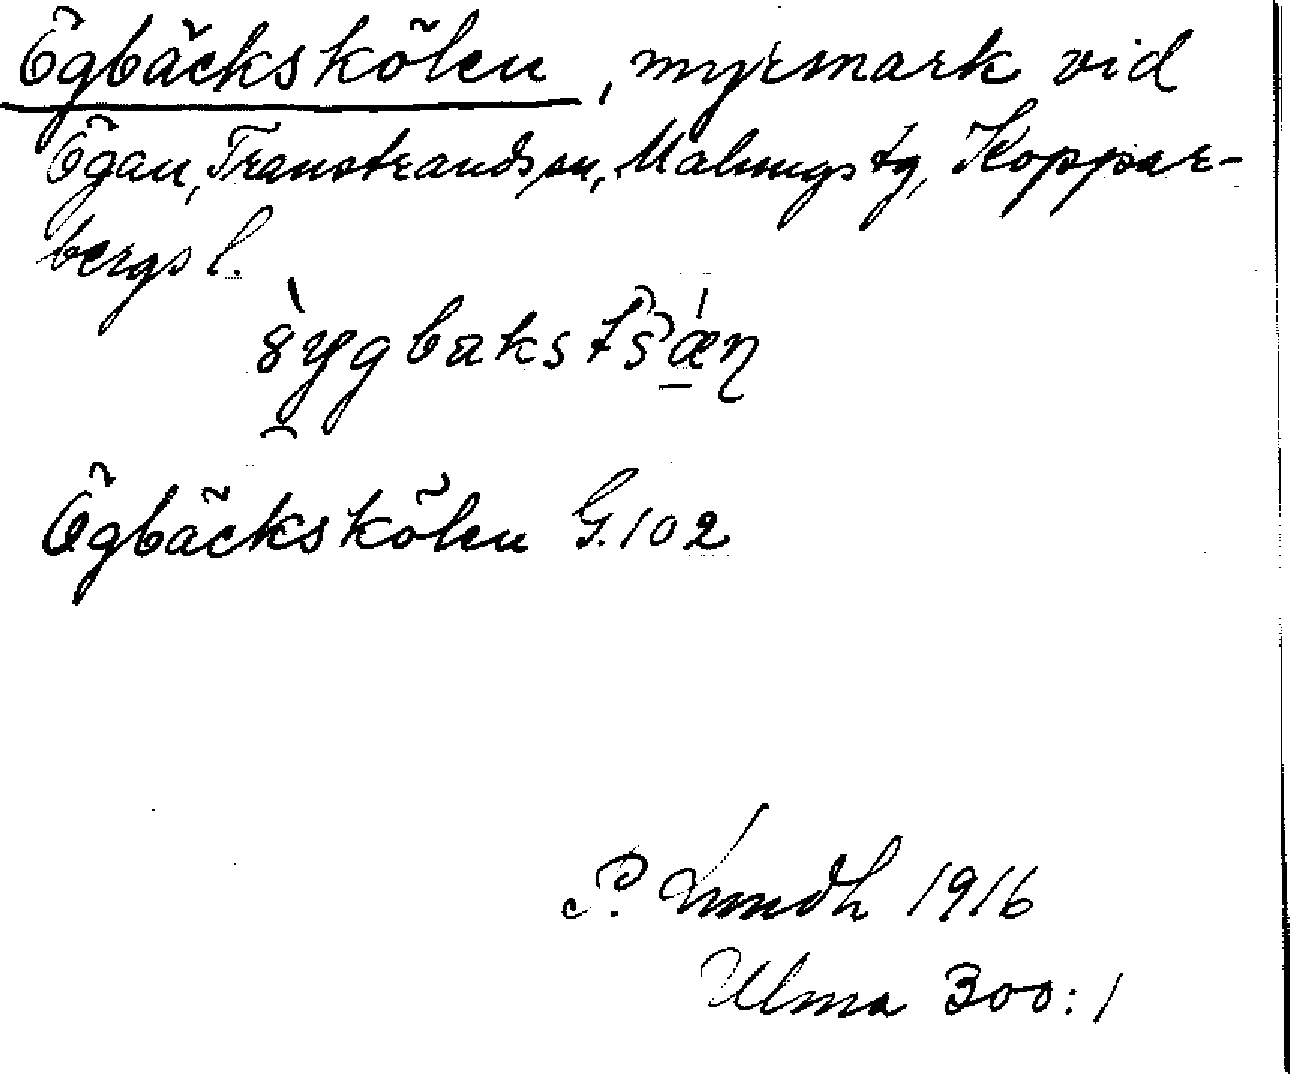 Ögbäckskölen, myrmark vid
Ögan, Transtrands sn, Malungs tg, Koppar-
bergs l.
Ögbäckskölen G.102
P. Lindh 1916
Ulma 300:1